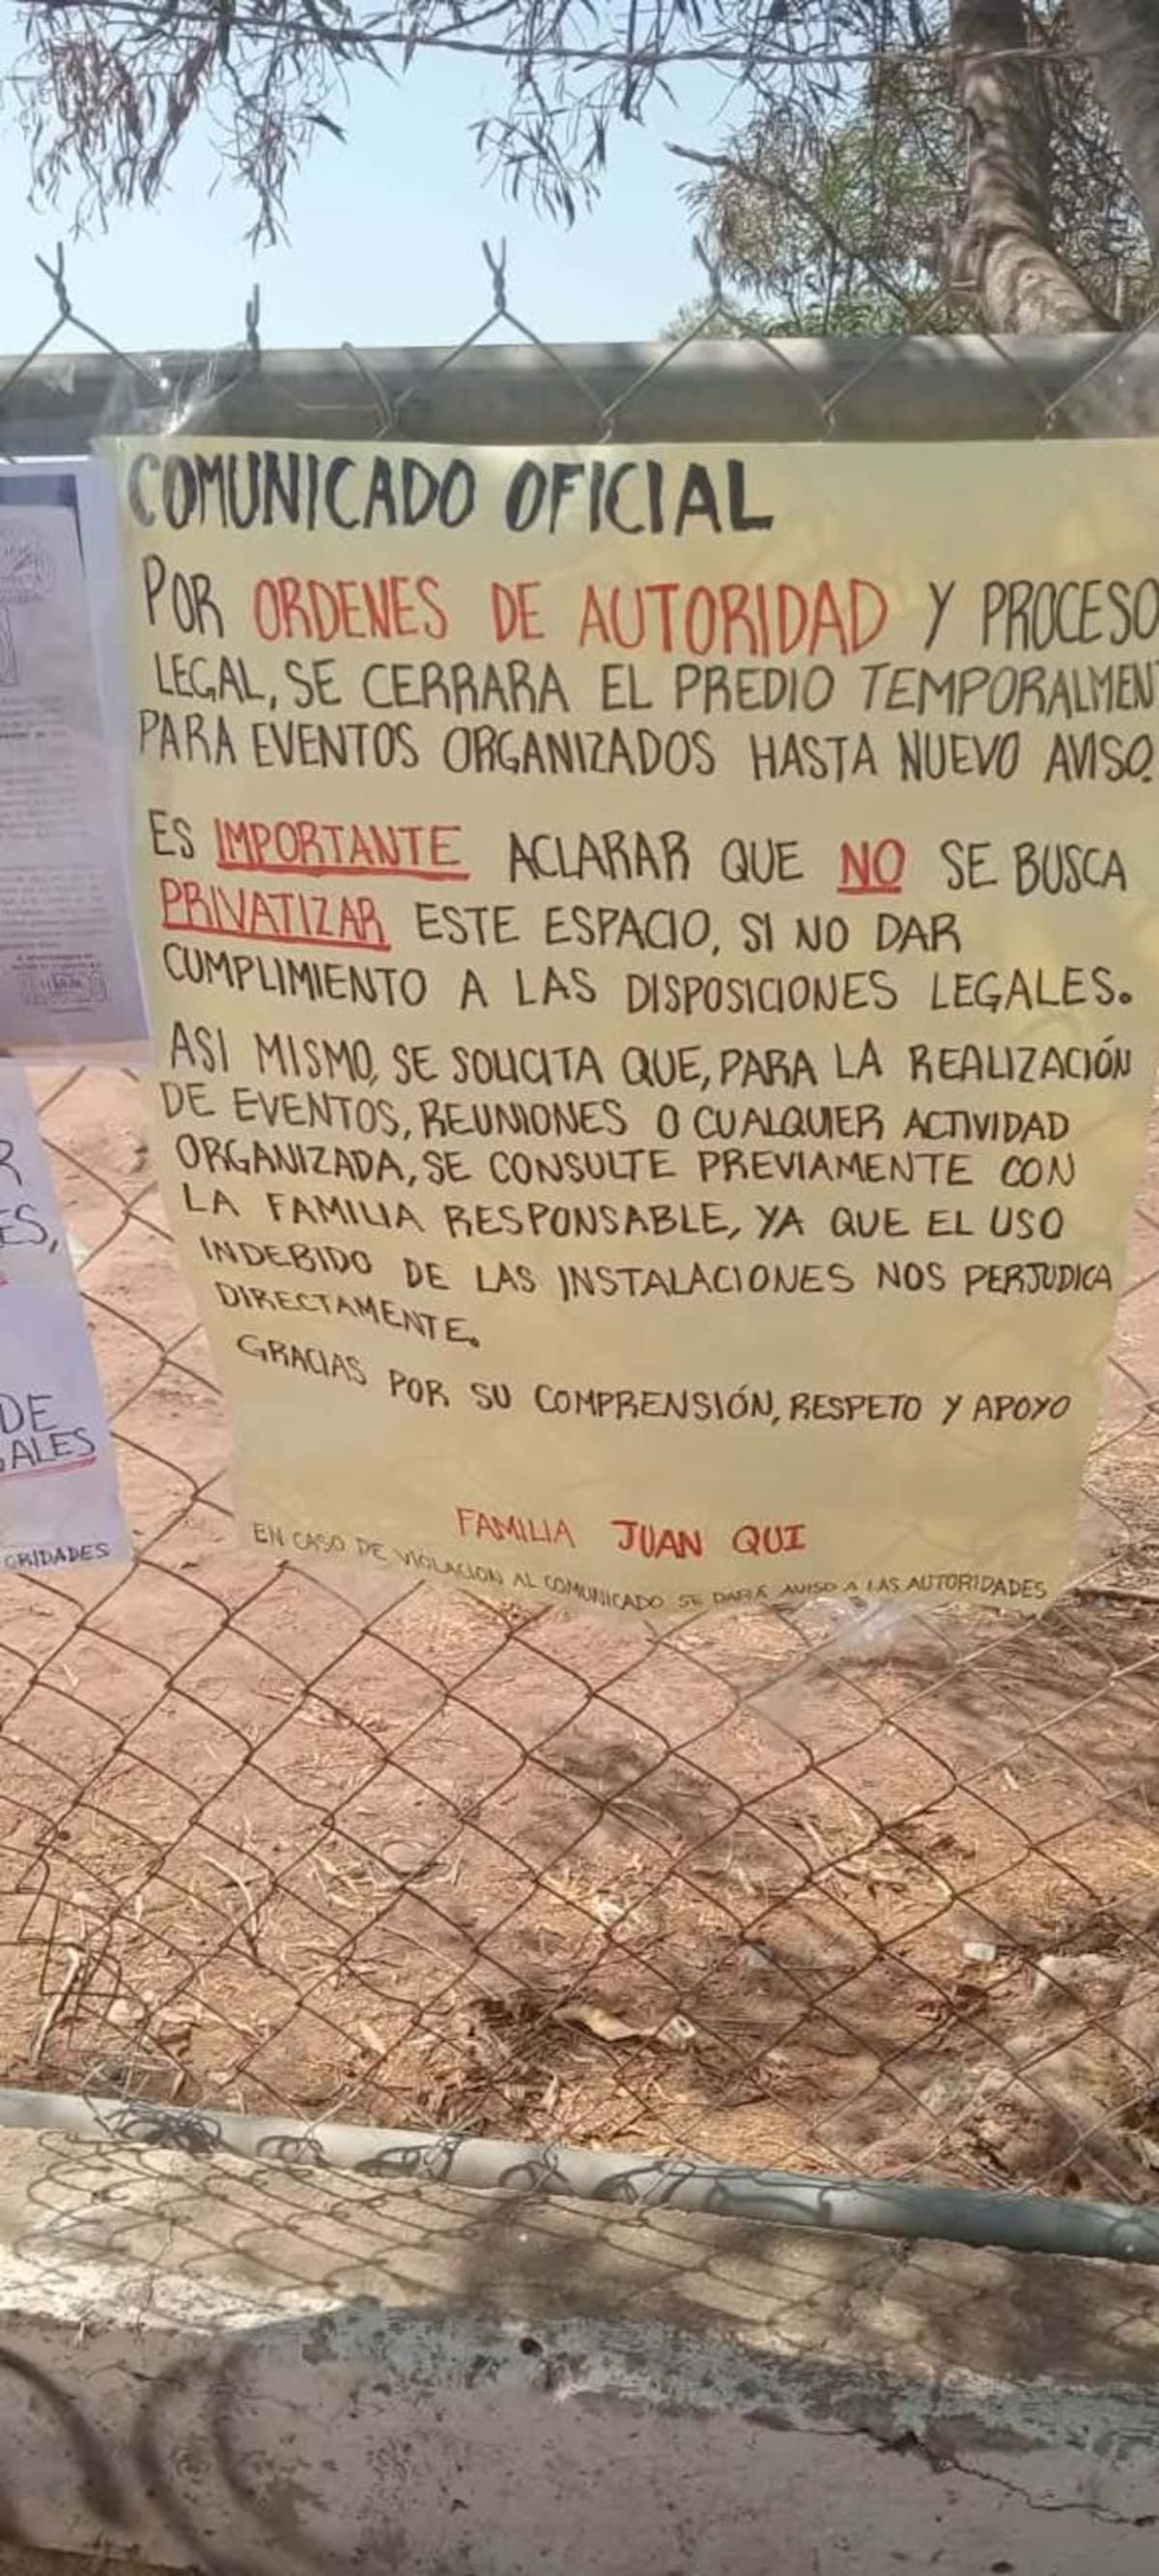 COMUNICADO OFICIAL
POR ORDENES DE AUTORIDAD Y PROCESO
LEGAL, SE CERRARA EL PREDIO TEMPORALMEN
PARA EVENTOS ORGANIZADOS HASTA NUEVO AVISO.
ES IMPORTANTE ACLARAR QUE NO SE BUSCA
PRIVATIZAR ESTE ESPACIO, SI NO DAR
CUMPLIMIENTO A LAS DISPOSICIONES LEGALES.
ASI MISMO, SE SOLICITA QUE, PARA LA REALIZACIÓN
DE EVENTOS, REUNIONES O CUALQUIER ACTIVIDAD
ORGANIZADA, SE CONSULTE PREVIAMENTE CON
LA FAMILIA RESPONSABLE, YA QUE EL USO
INDEBIDO DE LAS INSTALACIONES NOS PERJUDICA
DIRECTAMENTE.
GRACIAS POR SU COMPRENSIÓN, RESPETO Y APOYO
FAMILIA JUAN QUI
EN CASO DE VIOLACION AL COMUNICADO SE DARÁ AVISO A LAS AUTORIDADES
R
ES,
DE
GALES
ORIDADES